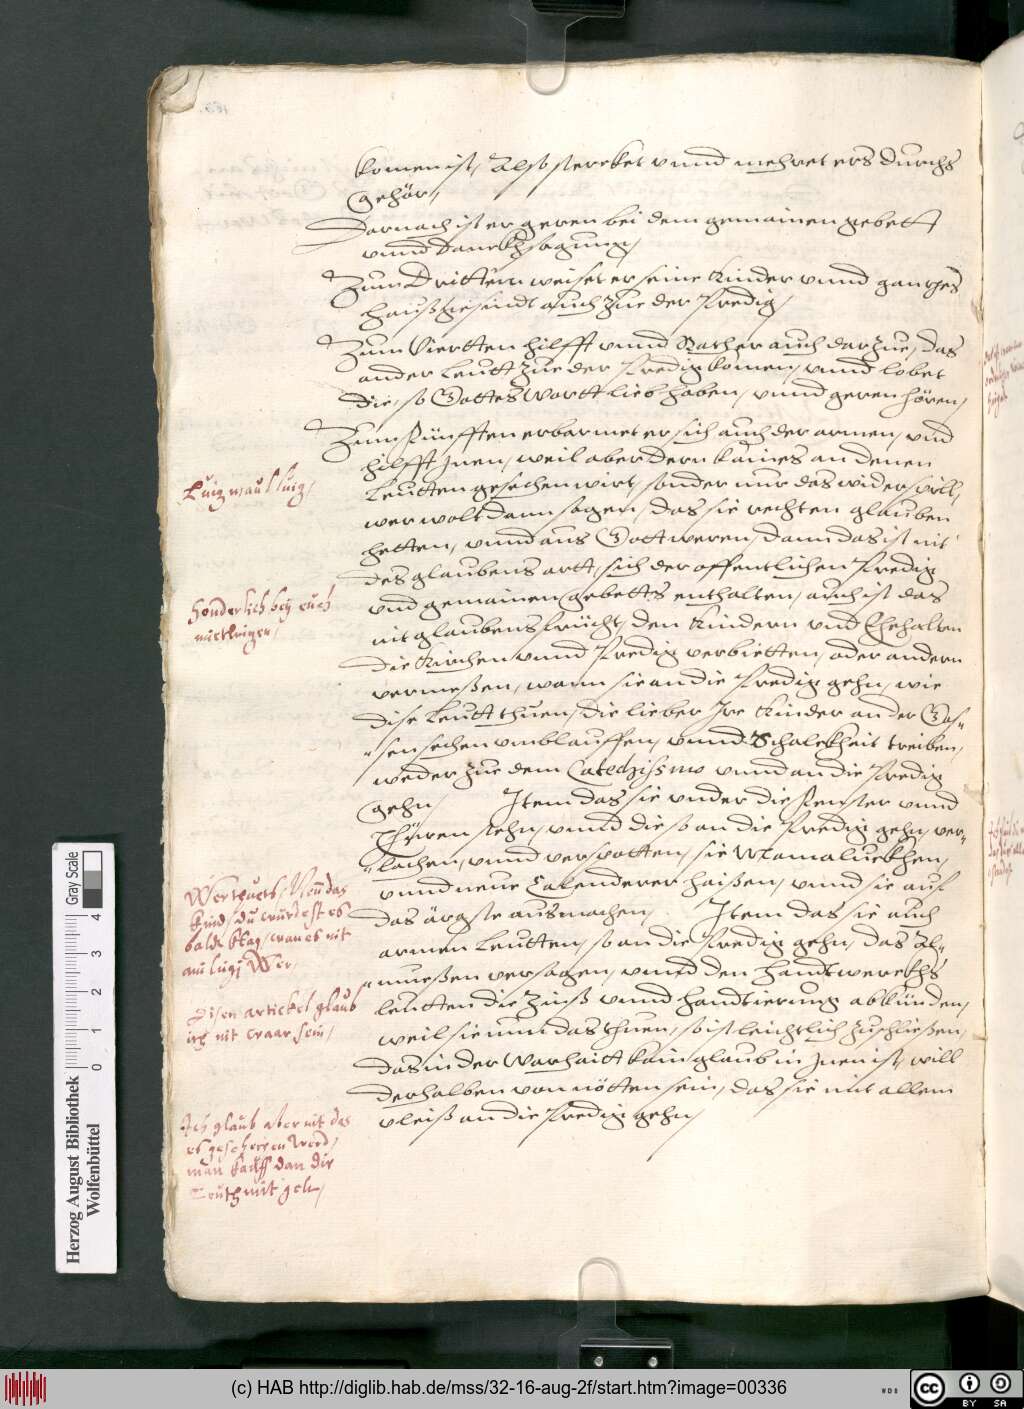 komen ist, Also sterckt vnnd mehret ers durchs
Gehör,
Darnach ist er geren bei dem gemainen gebett
vnnd Danckhsagung,
Zum Dritten weiset er seine kinder vnnd gantzes
haußgesindt auch zue der Predig,
Zum Viertten hilfft vnnd Rather auch darzue, das
ander leutt zue der Predig komen, vnnd lobet
die, so Gottes wortt lieb haben, vnnd geren hören,
Zum Fünfften erbarmet er sich auch der armen, vnd
hilfft Inen, weil aber dern kaines an denen
Leutten gesehen wirt, sonder nur das widerspill,
wer wolt dann sagen, das sie rechten glauben
hetten, vnnd aus Gott weren, dann das ist nit
des glaubens artt, sich der offentlichen Predig
vnd gemainen Gebetts enthalten, auch ist das
nit glaubens frücht, den kindern vnd Ehehalten
die kirchen vnnd Predig verbietten, oder andern
vermeßen, wann sie an die Predig gehn, wie
dise Leutt thuen, die lieber Ire kinder an der Gas-
sen sehen vmblauffen, vnnd Schalckheit treiben,
weder zue dem Catechissmo vnnd an die Predig
gehn, Item das sie vnder die Fenster vnnd
Thüren stehn, vnnd die so an die Predig gehn, ver-
lachen, vnnd verspotten, sie Mamaluckhen,
vnnd neue Calenderer haißen, vnnd sie auf
das ärgste ausmachen, Item das sie auch
armen Leutten, so an die Predig gehn, das Al-
mueßen versagen, vnnd den handtwerckhs
leutten die Zinß vnnd handtierung abkünden,
weil sie nun das thuen, so ist leichtlich zuschließen,
das in der warhaitt kain glaub in Inen ist, will
derhalben von nötten sein, das sie mit allem
vleiß an die Predig gehn,
Luig maul luig,
sonderlich bey euch
nuerkrigen,
kinds, du wurdest es
baldt klag, wan es nit
am lugj Wer,
Disen artickel glaub
ich nit waar sein,
Ich glaub aber nit das
es geschehen werd,
man kauff dan dir
Leuth mit gelt,
Herzog August Bibliothek
Wolfenbüttel
0 1 2 3 4
Gray Scale
(c) HAB http://diglib.hab.de/mss/32-16-aug-2f/start.htm?image=00336
WDB
CC BY SA